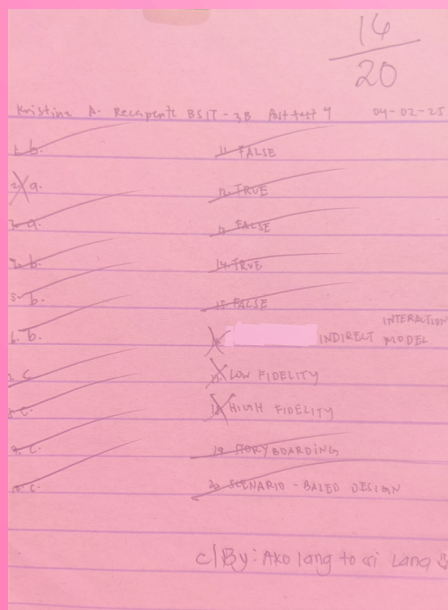 14
20
Kristine A. Recepente BSIT - 3B Post test 4 04-02-25
1. b.
2. a.
3. a.
4. b.
5. b.
6. b.
7. c
8. c.
9. c.
10. c.
11. FALSE
12. TRUE
13. FALSE
14. TRUE
15. FALSE
16. INDIRECT INTERACTION MODEL
17. LOW FIDELITY
18. HIGH FIDELITY
19. STORYBOARDING
20. SCENARIO - BASED DESIGN
c/By: Ako lang to si Lang